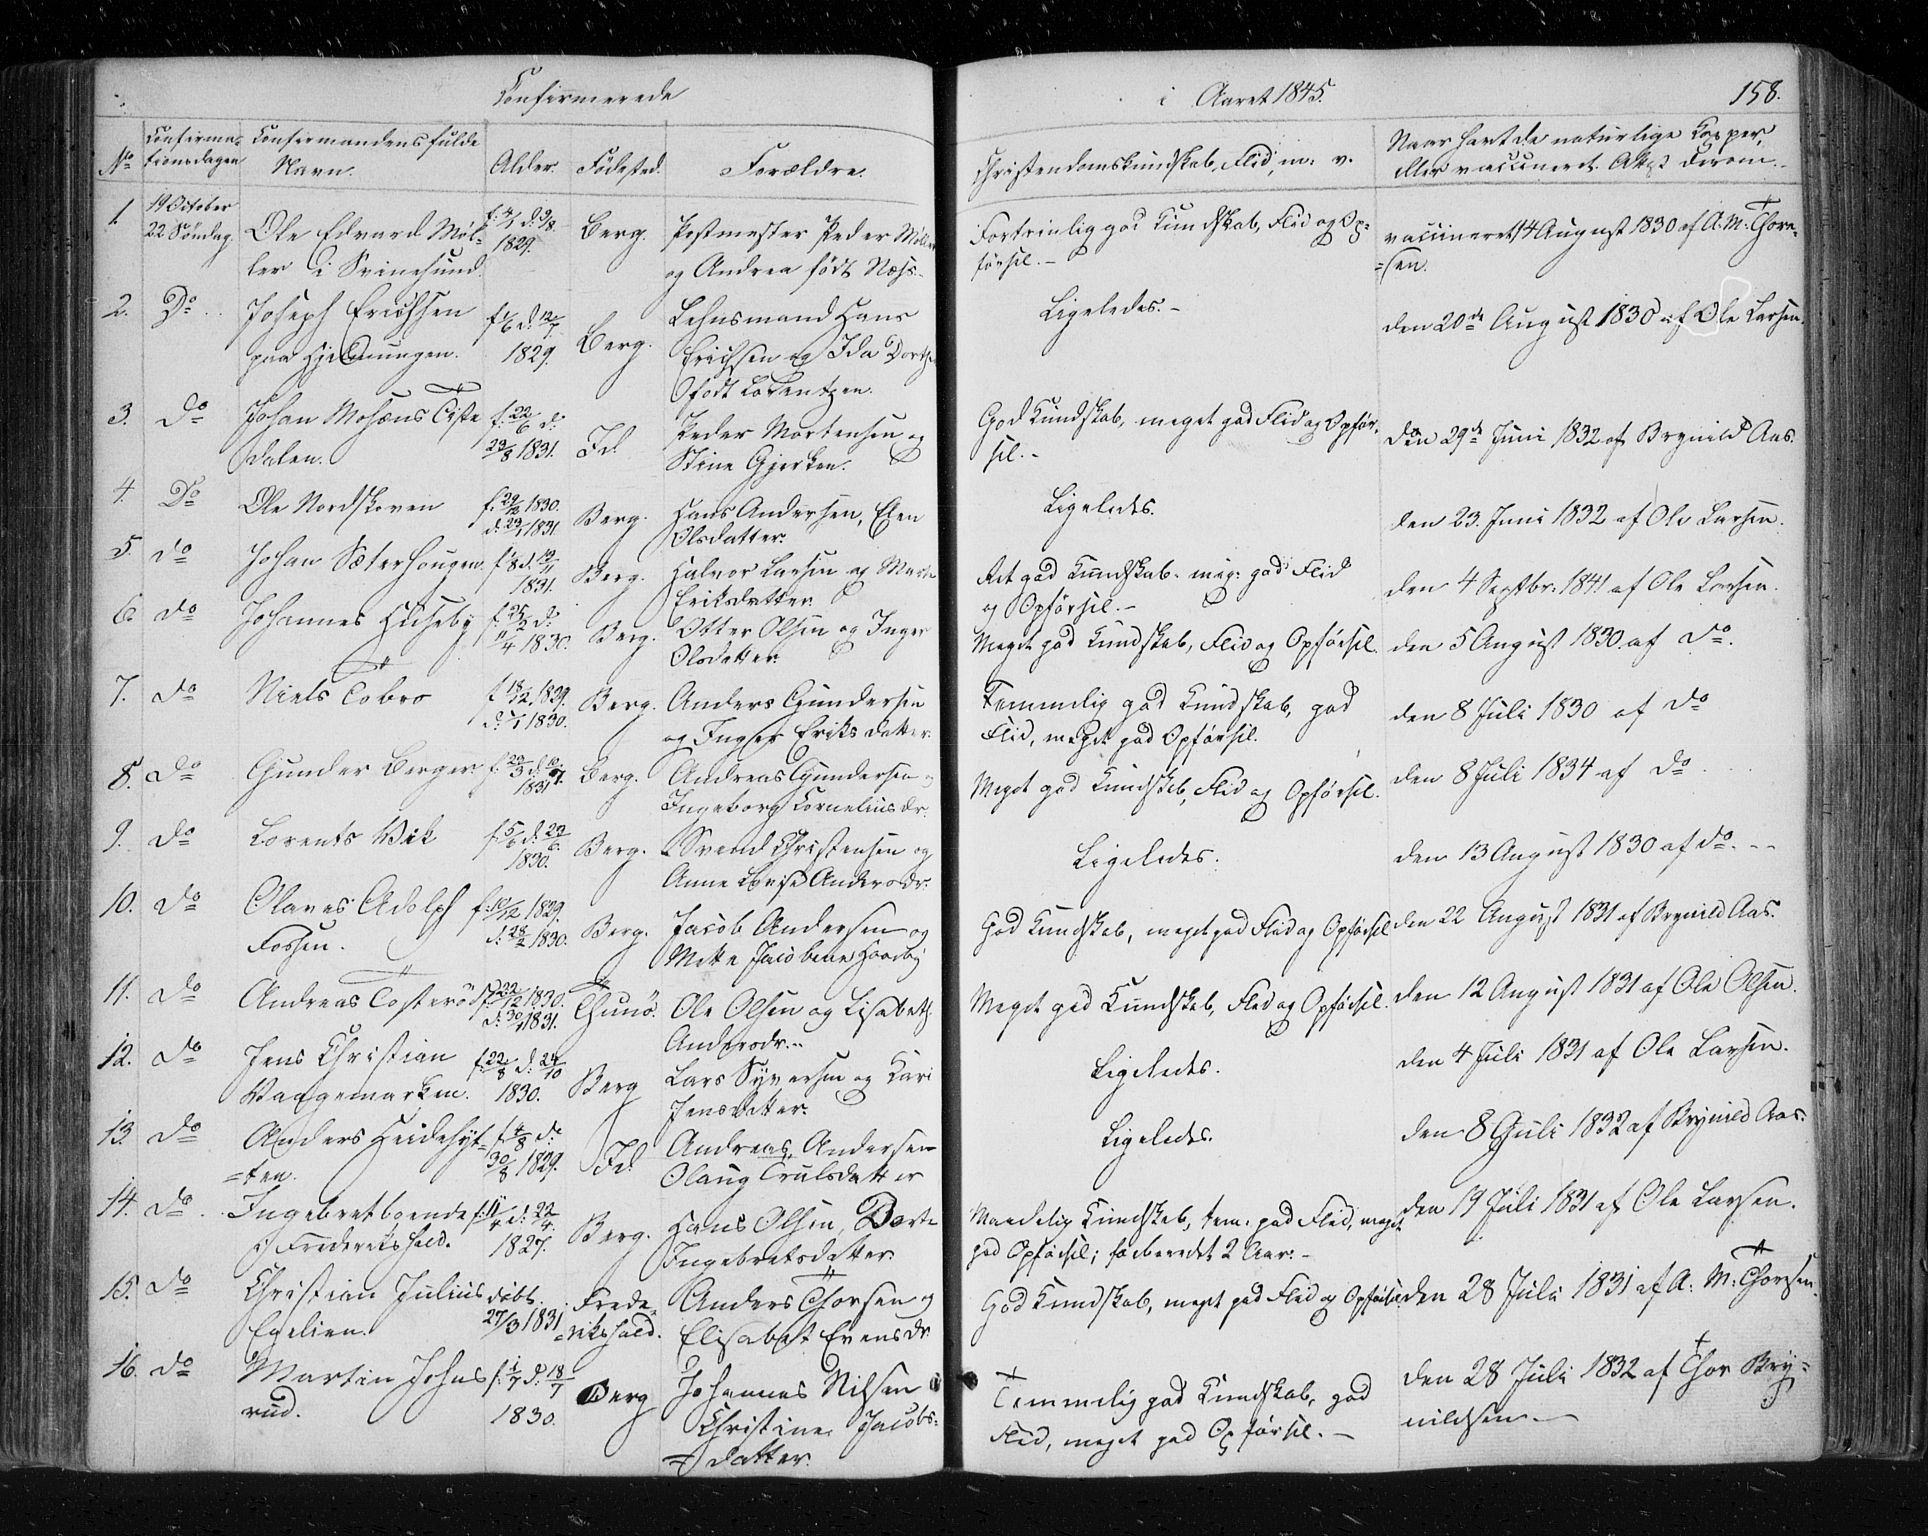 Confirmerede
i Aaret 1845.
158.
No
Confirma-
tionsdagen
Confirmandens fulde
Navn.
Alder.
Födested.
Forældre.
Christendomskundskab, Flid, m. v.
Naar havt de naturlige Kopper,
eller vaccineret. Attest derom.
1. 19 October
22 Söndag.
Ole Edvard Möl-
ler i Svinesund.
1829.
Berg.
Postmester Peder Möller
og Andrea født Næss.
Fortrinlig god Kundskab, Flid og Op-
førsel. -
vaccineret 14 August 1830 af A. M. Thore-
=sen.
2. Do
Joseph Erichsen
paa Hjelmungen.
f. 1/6 d. 12/7
1829.
Berg.
Lehnsmand Hans
Erichsen og Ida Dorthe
født Lorentzen.
Ligeledes. -
den 20de August 1830 af Ole Larsen.
3. do
Johan Mosæns Tiste
dalen.
f. 22/6 d.
28/8 1831.
Id.
Peder Mortensen og
Stine Gjerken.
God Kundskab, meget god Flid og Opför-
sel. -
den 29de Juni 1832 af Brynild Aas.
4. Do
Ole Nordskoven
f. 29/12 1830.
d. 23/1 1831.
Berg.
Hans Andersen, Elen
Olsdatter.
Ligeledes.
den 23. Juni 1832 af Ole Larsen.
5. do
Johan Sæterhougen.
1831.
Berg.
Halvor Larsen og Marte
Eriksdatter
Ret god Kundskab. meg. god Flid
og Opförsel. -
den 4 Septbr. 1841 af Ole Larsen.
6. do
Johannes Huseby
f. 25/2 d.
11/4 1830.
Berg.
Otter Olsen og Inger
Olsdatter.
Meget god Kundskab, Flid og Opförsel.
den 5 August 1830. af do.
7. do
Niels Tobro
f. 18/12 1829.
d. 1/1 1830.
Berg.
Anders Gundersen
og Inger Eriksdatter.
Temmelig god Kundskab, god
Flid, meget god Opförsel.
den 8 Juli 1830 af do
8. do
Gunder Berger
f. 29/3 d. 10/7
1831
Berg.
Andreas Gundersen og
Ingeborg Corneliusdr.
Meget god Kundskab, Flid og Opförsel.
den 8 Juli 1834 af do
9. do
Lorents Vik
f. 5/6 d. 29/6
1830.
Berg.
Svend Christensen og
Anne Lovise Andersdr.
Ligeledes.
den 13 August 1830 af do. --
10. do
Olaves Adolph
Fossen.
f. 10/12 1829.
d. 28/2 1830.
Berg.
Jacob Andersen og
Mette Jacobine Haaeby
God Kundskab, meget god Flid og Opförsel
den 22 August 1831 af Brynild Aas.
11. do
Andreas Tosteröd
f. 22/12 1830.
d. 30/1 1831.
Thunö.
Ole Olsen og Lisabeth
Andersdr. --
Meget god Kundskab, Flid og Opförsel.
den 12 August 1831 af Ole Olsen.
12. do
Jens Christian
Vaagemarken.
f. 22/8 d. 24/10
1830.
Berg
Lars Syversen og Kari
Jensdatter.
Ligeledes.
den 4 Juli 1831 af Ole Larsen.
13. do
Anders Heidehyt-
=ten.
f. 4/8 d.
30/8 1829.
Id.
Andreas Andersen
Olaug Trulsdatter
Ligeledes.
den 8 Juli 1832 af Brynild Aas.
14. do
Ingebret boende
i Frederikshald.
f. 11/4 d. 22/4.
1827.
Berg.
Hans Olsen, Dorte
Ingebretsdatter
Maadelig Kundskab, tem. god Flid, meget
god Opförsel; forberedet 2 Aar. -
den 19 Juli 1831 af Ole Larsen.
15. do
Christian Julius
Egelien.
döbt.
27/3 1831
Frede-
=rikshald.
Anders Thorsen og
Elisabet Evensdr
God Kundskab, meget god Flid og Opförsel
den 28 Juli 1831 af A. M. Thoresen.
16. do
Martin Johns
rud.
f. 1/7 d. 18/7
1830.
Berg
Johannes Nilsen
Christine Jacobs-
=datter.
Temmelig god Kundskab, god
Flid, meget god Opförsel. -
den 28 Juli 1832 af Thor Bry-
nildsen. -